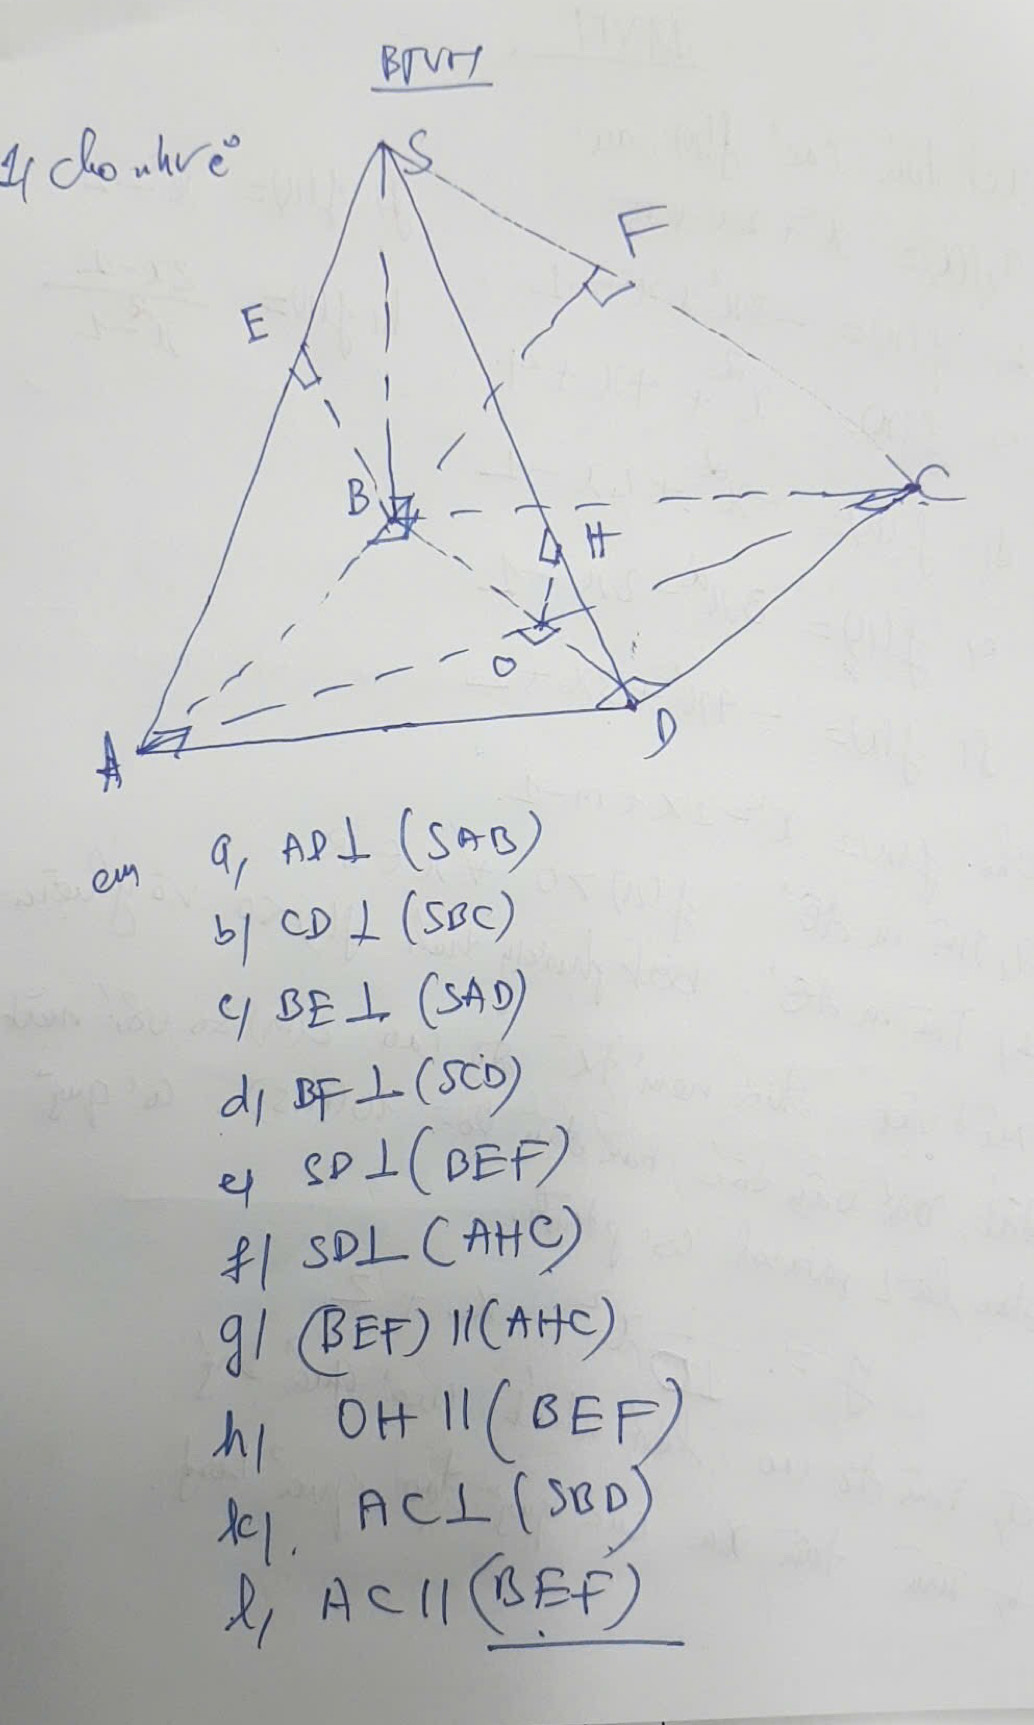 BTVN
1, Cho như vẽ
S
F
E
B
C
H
O
A
D
cm
a, AD ⊥ (SAB)
b) CD ⊥ (SBC)
c) BE ⊥ (SAD)
d, BF ⊥ (SCD)
e) SD ⊥ (BEF)
f) SD ⊥ (AHC)
g) (BEF) // (AHC)
h) OH // (BEF)
k). AC ⊥ (SBD)
l, AC // (BEF)